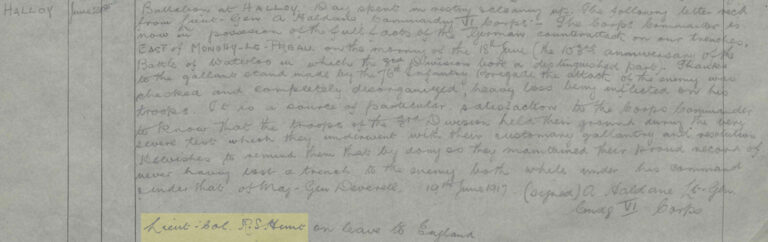 HALLOY June 20th Battalion at HALLOY. Day spent in resting & cleaning up. The following letter recd
from Lieut-Gen. A Haldane Commanding VI Corps:- The Corps Commander is
now in possession of the full facts of the German counterattack on our trenches,
EAST of MONCHY-LE-PREUX on the morning of the 18th June (the 102nd anniversary of the
Battle of Waterloo in which the 3rd Division bore a distinguished part). Thanks
to the gallant stand made by the 76th Infantry Brigade the attack of the enemy was
checked and completely disorganized, heavy loss being inflicted on his
troops. It is a source of particular satisfaction to the Corps Commander
to know that the troops of the 3rd Division held their ground during the very
severe test which they underwent with their customary gallantry and resolution
He wishes to remind them that by doing so they maintained their proud record of
never having lost a trench to the enemy both while under his command
& under that of Maj-Gen Deverell. 19th June 1917 (signed) A Haldane Lt-Gen
Comdg VI Corps
Lieut-Col. R.S. Hunt on leave to England